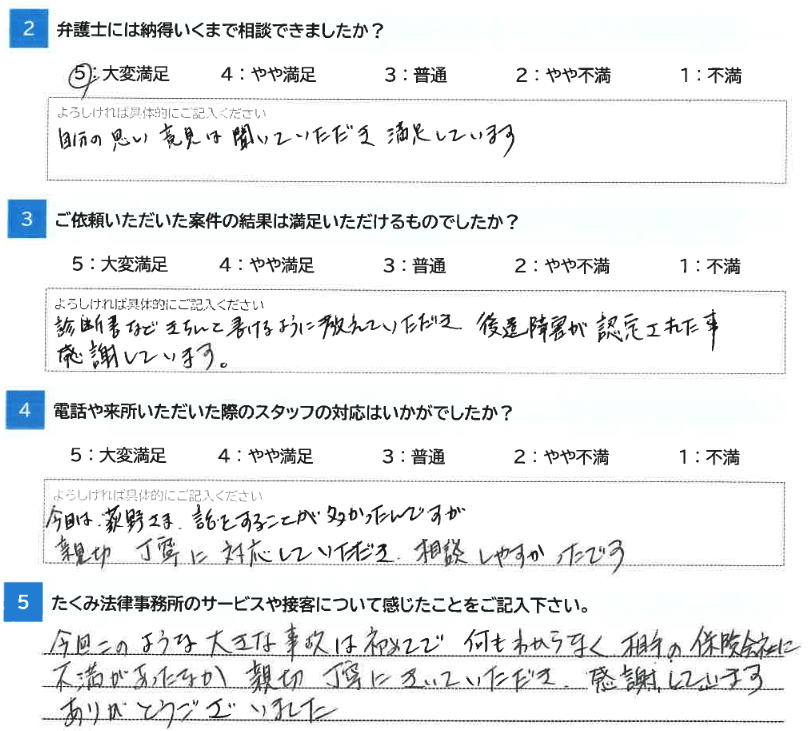 2 弁護士には納得いくまで相談できましたか？
5：大変満足 4：やや満足 3：普通 2：やや不満 1：不満
よろしければ具体的にご記入ください
自分の思い 意見は 聞いていただき 満足しています
3 ご依頼いただいた案件の結果は満足いただけるものでしたか？
5：大変満足 4：やや満足 3：普通 2：やや不満 1：不満
よろしければ具体的にご記入ください
診断書など きちんと書けるように教えていただき 後遺障害が 認定された事
感謝しています。
4 電話や来所いただいた際のスタッフの対応はいかがでしたか？
5：大変満足 4：やや満足 3：普通 2：やや不満 1：不満
よろしければ具体的にご記入ください
今回は、荻野さま、話をすることが多かったんですが
親切 丁寧に 対応していただき、相談 しやすかったです
5 たくみ法律事務所のサービスや接客について感じたことをご記入下さい。
今回このような 大きな事故は初めてで 何もわからなく 相手の 保険会社に
不満があったなか 親切 丁寧に きいていただき、感謝しています
ありがとうございました